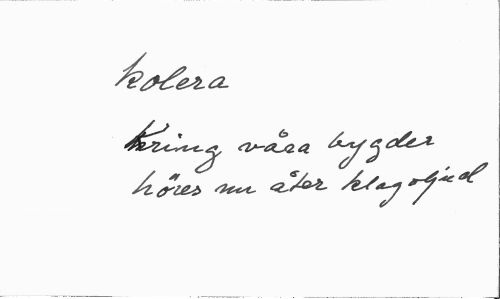 kolera
Kring våra bygder
höres nu åter klagoljud